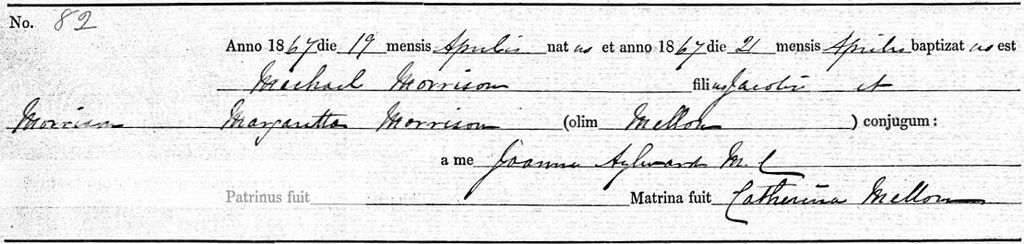 No. 82
Anno 1867 die 19 mensis Aprilis natus et anno 1867 die 21 mensis Aprilis baptizatus est
Michael Morrison filius Jacobi et
Morrison Margaretta Morrison (olim Mellon) conjugum:
a me Joanne Aylward M. C
Patrinus fuit Matrina fuit Catherina Mellon